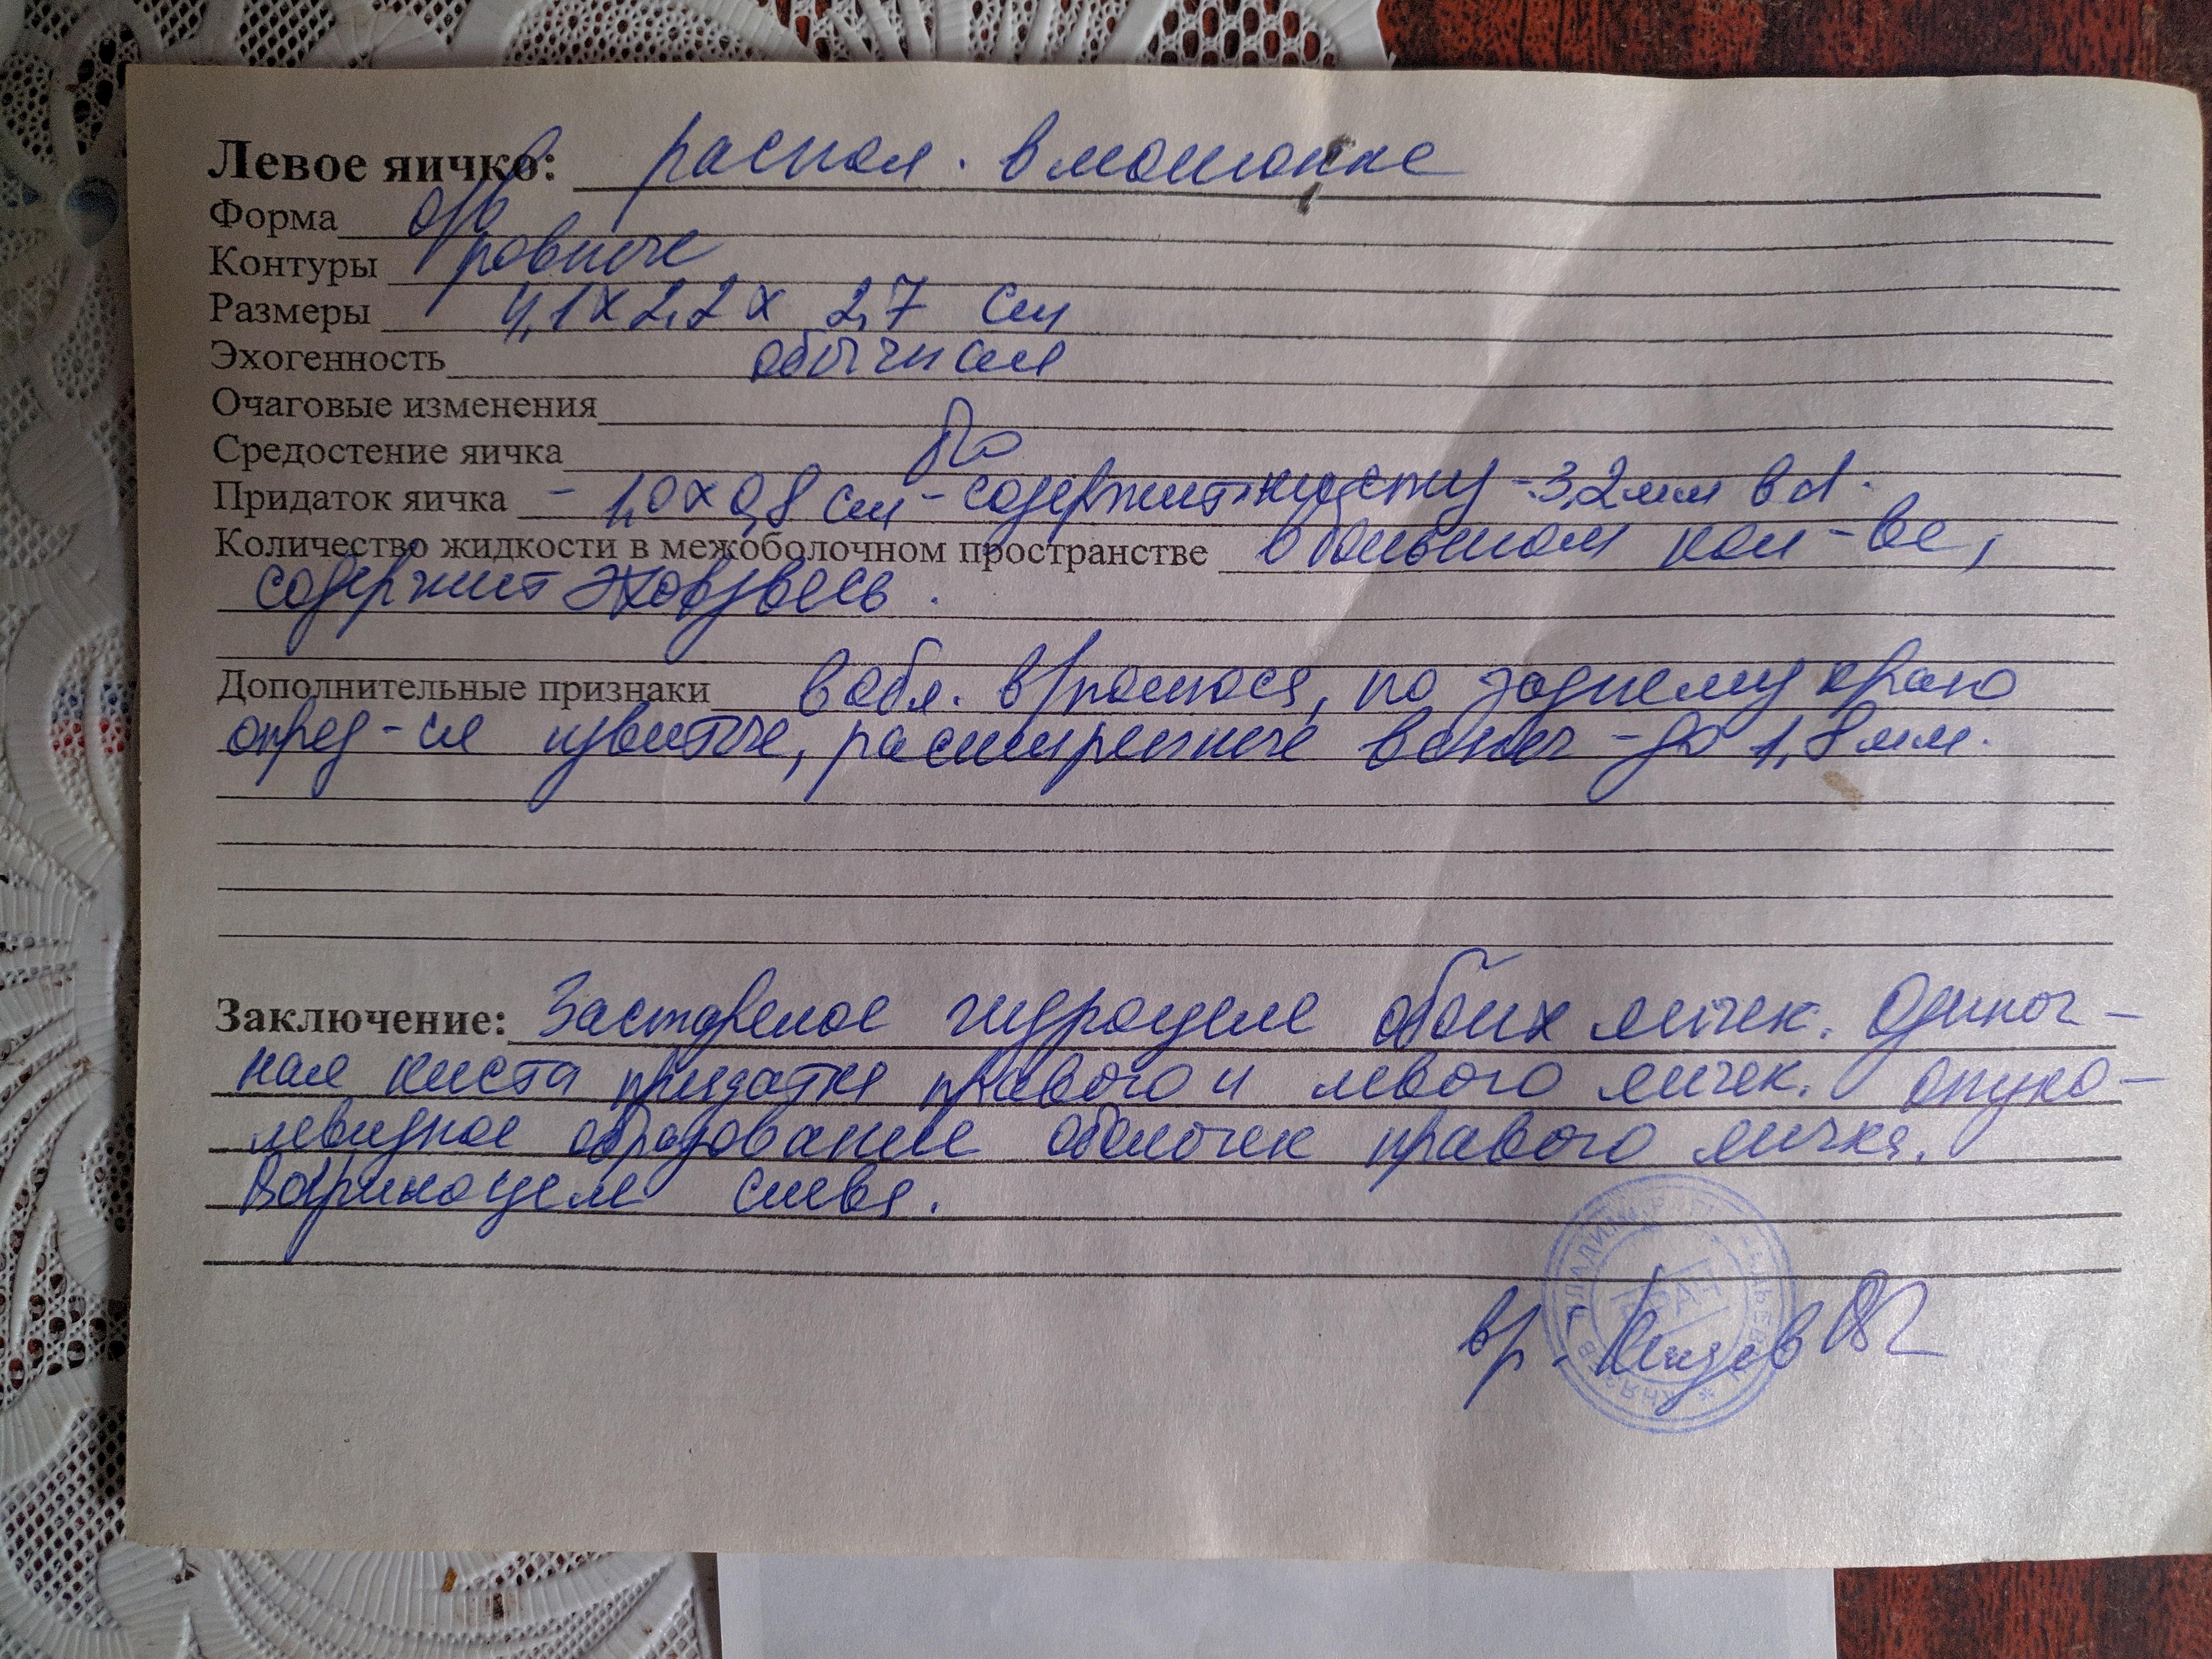 Левое яичко: распол. в мошонке
Форма обр
Контуры ровные
Размеры 4,1 х 2,2 х 2,7 см
Эхогенность обычная
Очаговые изменения
Средостение яичка
Придаток яичка - 1,0 х 0,8 см - содержит кисту - 3,2 мм в d.
Количество жидкости в межоболочном пространстве в большом кол-ве,
содержит эховзвесь.
Дополнительные признаки в обл. в/полюса, по заднему краю
опред-ся извитые, расширенные вены - до 1,8 мм.
Заключение: Застарелое гидроцеле обоих яичек. Одиноч-
ная киста придатка правого и левого яичек. Опухо-
левидное образование оболочек правого яичка.
Варикоцеле слева.
вр. Князев